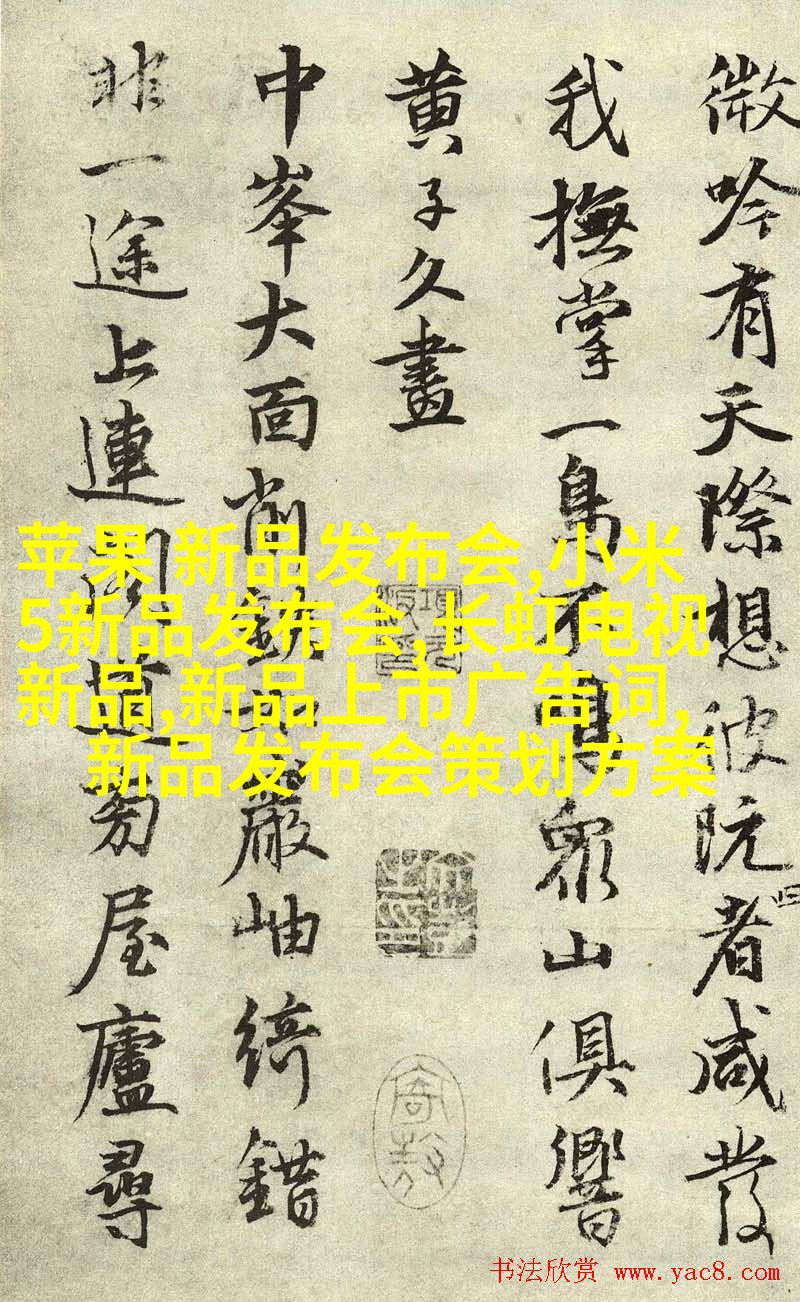 微吟有天際想彼阮者咸發
我撫掌一鳥不鳴衆山俱響
黄子久畫
中峯大面削巖岫綺錯
非一途上連閣道旁屋廬尋
苹果 新品发布会,小米
5新品发布会,长虹电视
新品,新品上市广告词,
新品发布会策划方案
书法欣赏 www.yac8.com